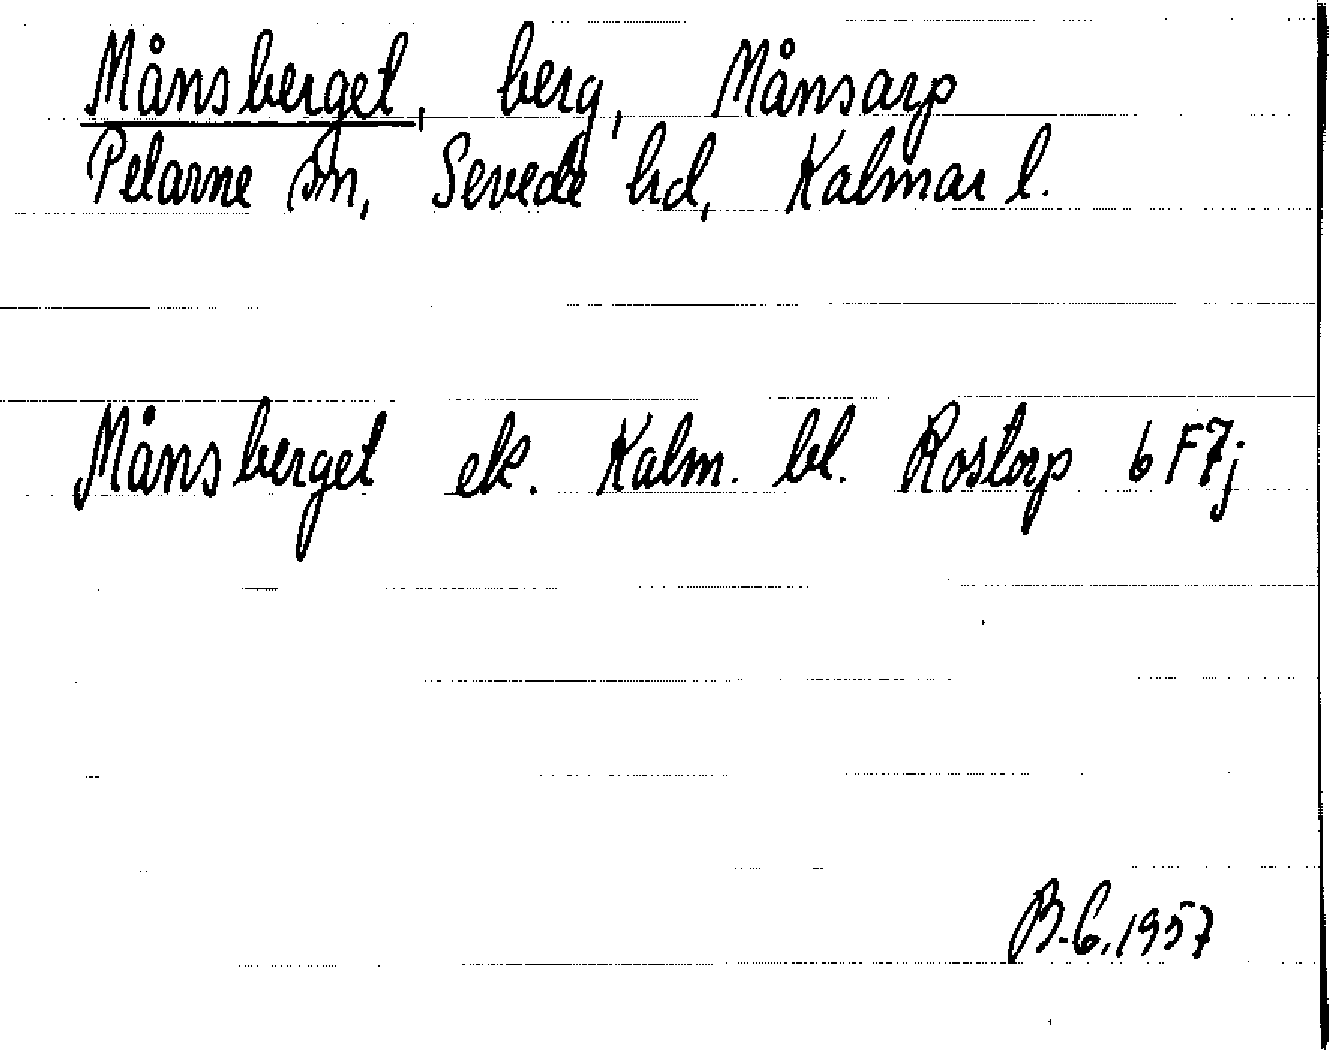 Månsberget, berg, Månsarp
Pelarne sn, Sevede hd, Kalmar l.
Månsberget ek. Kalm. bl. Rostorp 6F7j
B.G. 1957